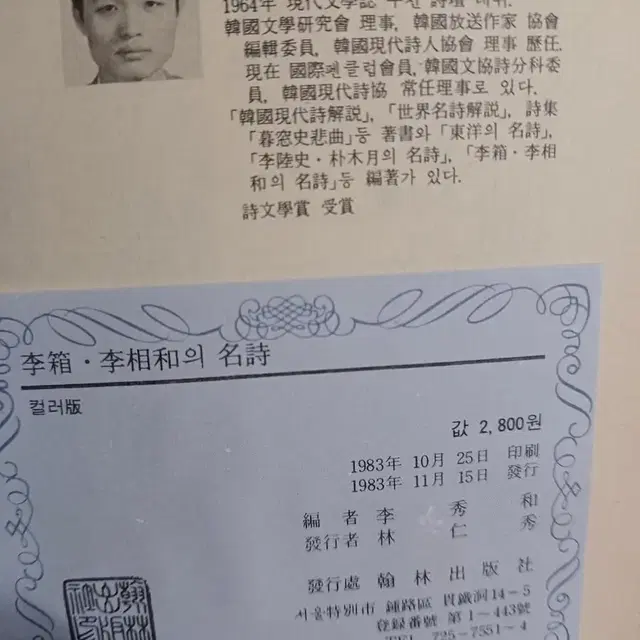 1964年 現代文學誌
韓國文學研究會 理事, 韓國放送作家 協會
編輯委員, 韓國現代詩人協會 理事 歷任.
現在 國際펜클럽會員, 韓國文協詩分科委
員, 韓國現代詩協 常任理事로 있다.
「韓國現代詩解說」, 「世界名詩解說」, 詩集
「暮窓史悲曲」등 著書와 「東洋의 名詩」,
「李陸史・朴木月의 名詩」, 「李箱・李相
和의 名詩」등 編著가 있다.
詩文學賞 受賞
李箱・李相和의 名詩
컬러版
값 2,800원
1983年 10月 25日 印刷
1983年 11月 15日 發行
編者 李秀和
發行者 林仁秀
發行處 翰林出版社
서울特別市 鍾路區 貫鐵洞14-5
登錄番號 第1~443號
TEL 725-7551~4